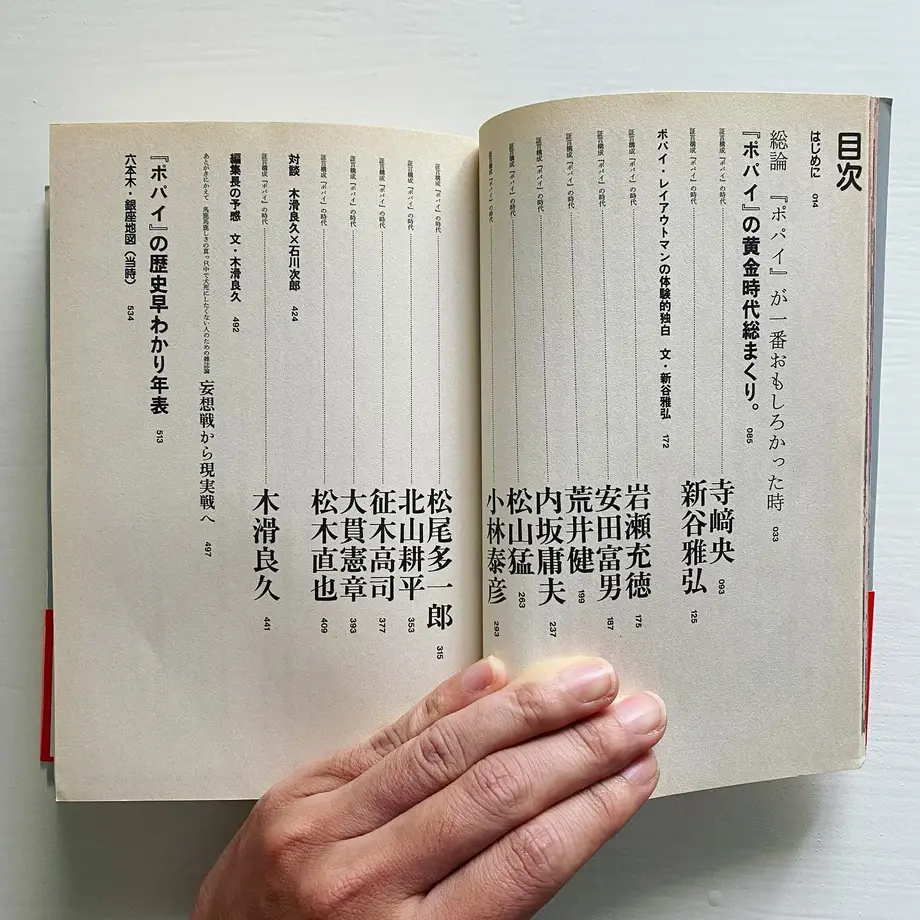 目次
はじめに 014
総論 『ポパイ』が一番おもしろかった時 033
『ポパイ』の黄金時代総まくり。 085
証言構成『ポパイ』の時代 寺﨑央 093
証言構成『ポパイ』の時代 新谷雅弘 125
ポパイ・レイアウトマンの体験的独白 文・新谷雅弘 172
証言構成『ポパイ』の時代 岩瀬充徳 175
証言構成『ポパイ』の時代 安田富男 187
証言構成『ポパイ』の時代 荒井健 199
証言構成『ポパイ』の時代 内坂庸夫 237
証言構成『ポパイ』の時代 松山猛 263
証言構成『ポパイ』の時代 小林泰彦 293
証言構成『ポパイ』の時代 松尾多一郎 315
証言構成『ポパイ』の時代 北山耕平 353
証言構成『ポパイ』の時代 征木高司 377
証言構成『ポパイ』の時代 大貫憲章 393
証言構成『ポパイ』の時代 松木直也 409
対談 木滑良久×石川次郎 424
証言構成『ポパイ』の時代 木滑良久 441
編集長の予感 文・木滑良久 492
あとがきにかえて 馬鹿馬鹿しさの真っ只中で犬死にしたくない人のための雑誌論 妄想戦から現実戦へ 497
『ポパイ』の歴史早わかり年表 513
六本木・銀座地図(当時) 534